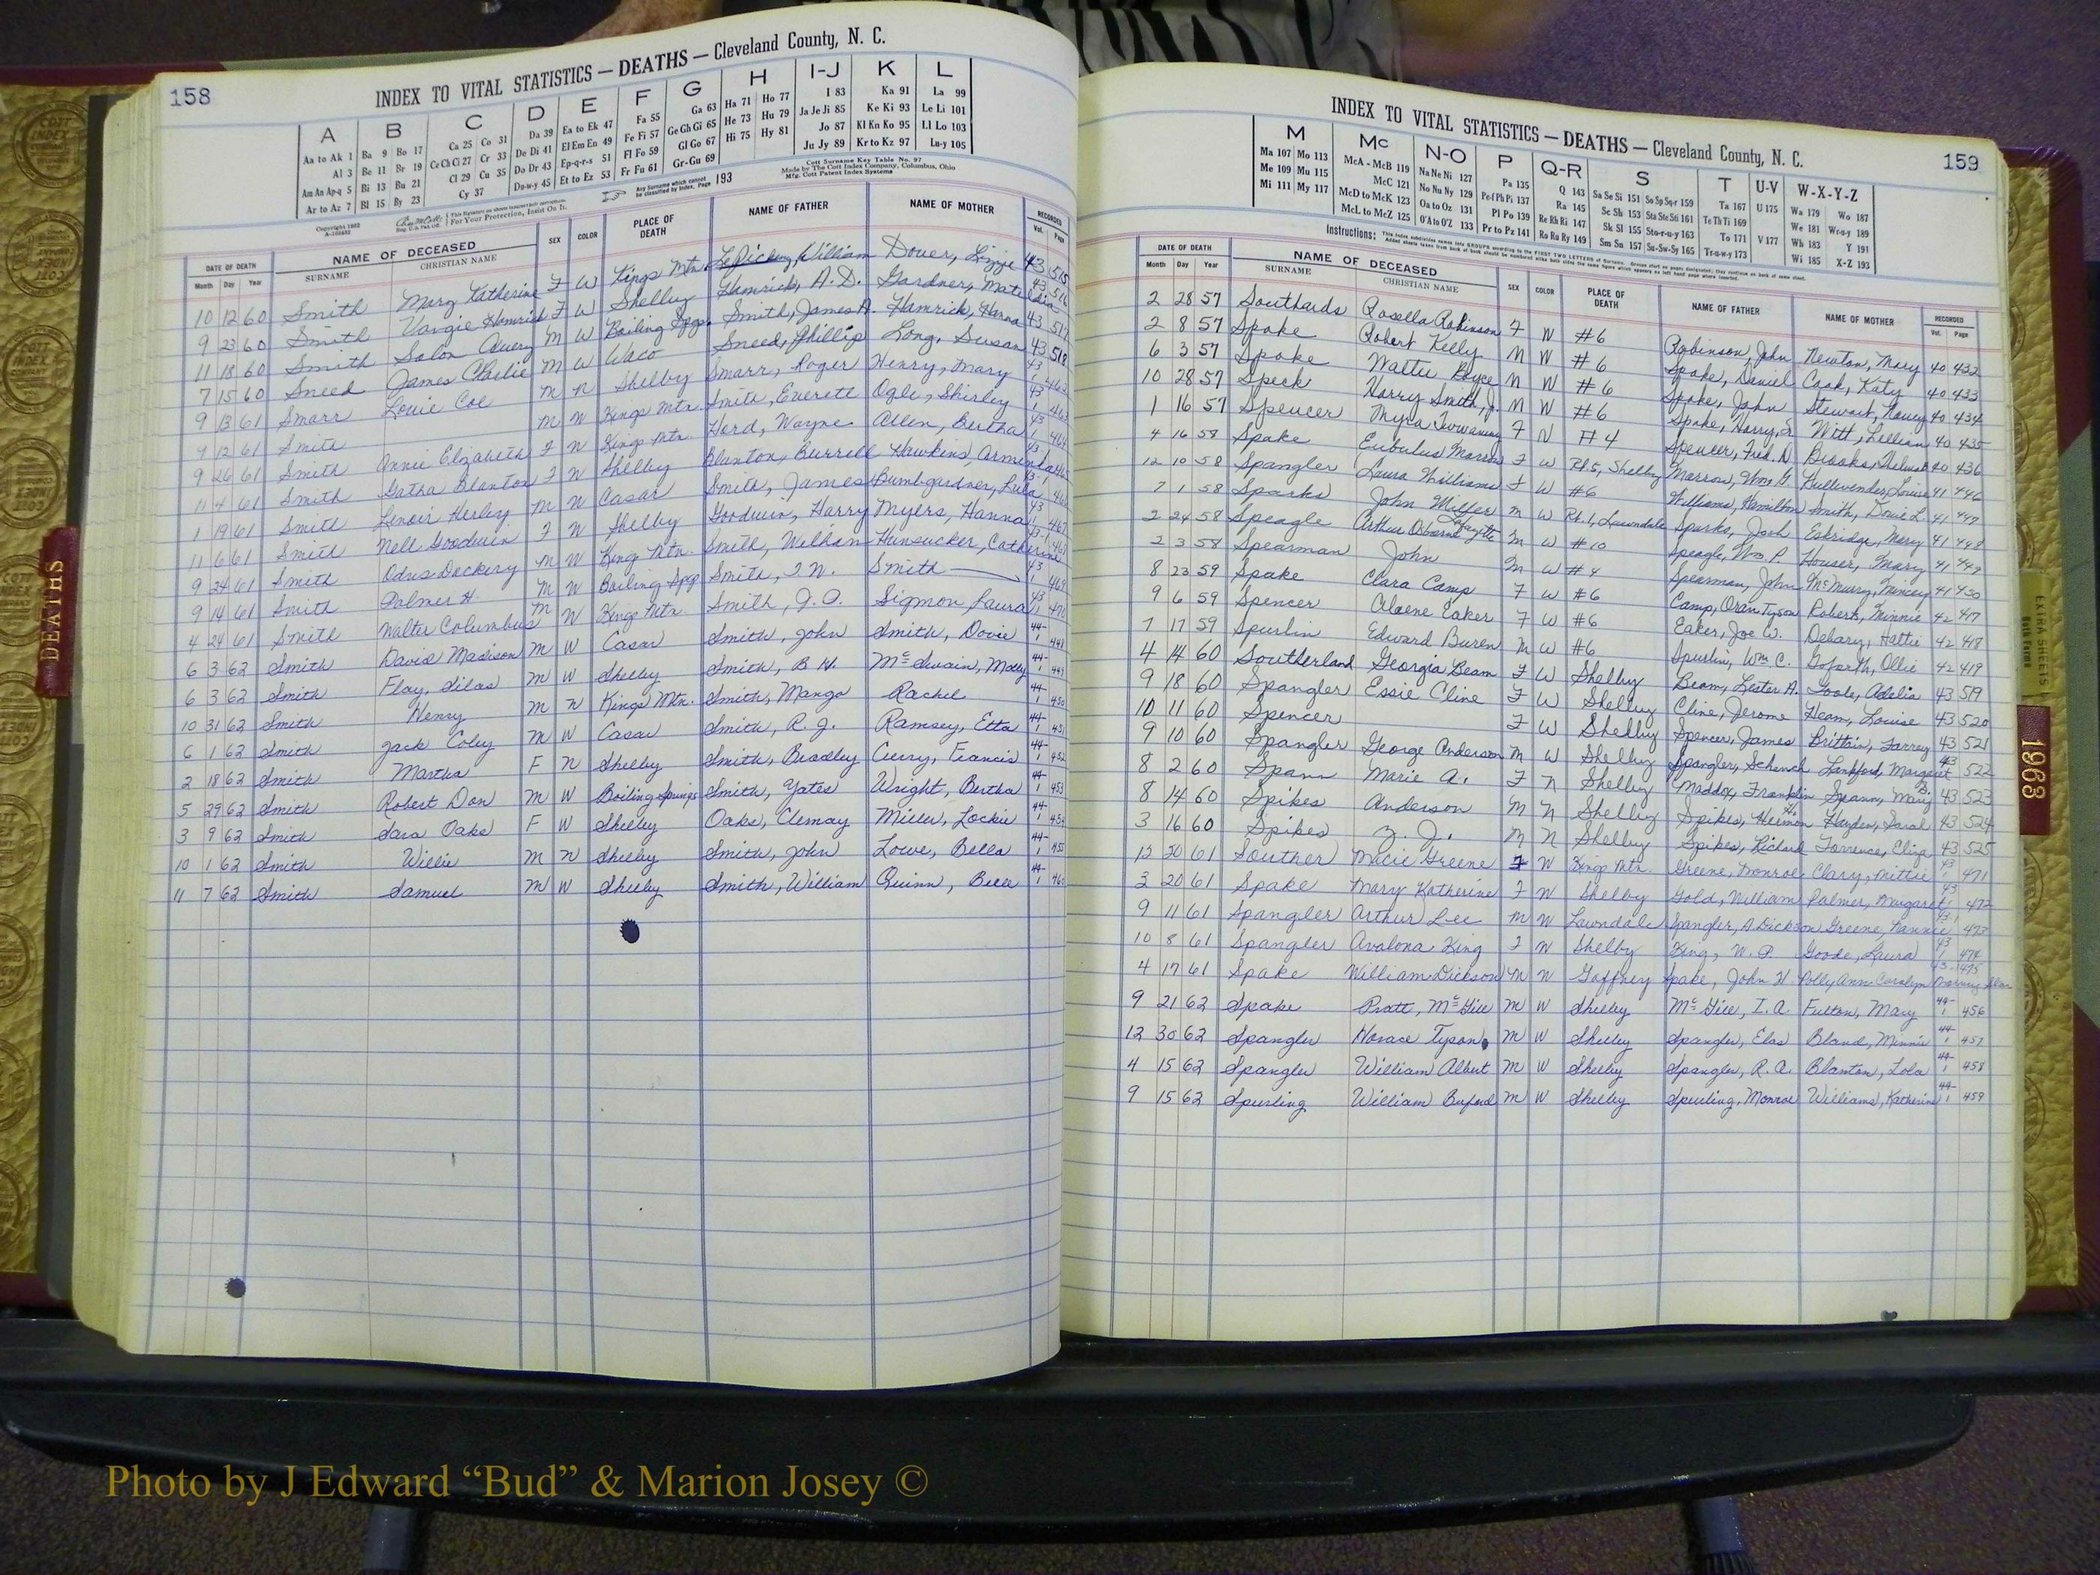 158
INDEX TO VITAL STATISTICS — DEATHS — Cleveland County, N. C.
A B C D E F G H I-J K L
Aa to Ak 1 Ba 9 Bo 17 Ca 25 Co 31 Da 39 Ea to Ek 47 Fa 55 Ga 63 Ha 71 Ho 77 I 83 Ka 91 La 99
Al 3 Be 11 Br 19 Ce Ch Ci 27 Cr 33 De Di 41 El Em En 49 Fe Fi 57 Ge Gh Gi 65 He 73 Hu 79 Ja Je Ji 85 Ke Ki 93 Le Li 101
Am An Ap-q 5 Bi 13 Bu 21 Cl 29 Cu 35 Do Dr 43 Ep-q-r-s 51 Fl Fo 59 Gl Go 67 Hi 75 Hy 81 Jo 87 Kl Kn Ko 95 Ll Lo 103
Ar to Az 7 Bl 15 By 23 Cy 37 Du-w-y 45 Et to Ez 53 Fr Fu 61 Gr-Gu 69 Ju Jy 89 Kr to Kz 97 Lu-y 105
Any Surname which cannot be classified by Index, Page 193
Cott Surname Key Table No. 97
Made by The Cott Index Company, Columbus, Ohio
Mfg. Cott Patent Index Systems
DATE OF DEATH NAME OF DECEASED SEX COLOR PLACE OF DEATH NAME OF FATHER NAME OF MOTHER RECORDED
Month Day Year SURNAME CHRISTIAN NAME Vol. Page
10 12 60 Smith Mary Katherine F W Kings Mtn. William Dover, Lizzie 43 515
9 23 60 Smith Vangie Hamrick F W Shelby Hamrick, A. D. Gardner, 43 516
11 18 60 Smith Solon Avery M W Boiling Spgs. Smith, James A. Hamrick, 43 517
7 15 60 Sneed James Charlie M W Waco Sneed, Phillip Long, Susan 43 518
9 13 61 Smarr Louie Coe M N Shelby Smarr, Roger Henry, Mary 43 462
9 12 61 Smith M W Kings Mtn. Smith, Everett Ogle, Shirley 43 463
9 26 61 Smith Annie Elizabeth F W Kings Mtn. Hord, Wayne Allen, Bertha 43 464
11 4 61 Smith Gatha Blanton F W Shelby Blanton, Burrell Hawkins,
1 19 61 Smith Lenoir Herley M W Casar Smith, James Bumbgardner,
11 6 61 Smith Nell Goodwin F W Shelby Goodwin, Harry Myers, Hanna 43 467
9 24 61 Smith Odus Dockery M W Kings Mtn. Smith, William Hunsucker, Catherine
9 14 61 Smith Palmer H. M W Boiling Spgs Smith, Smith 43 469
4 24 61 Smith Walter Columbus M W Kings Mtn. Smith, J. O. Sigmon, Laura 43 470
6 3 62 Smith David Madison M W Casar Smith, John Smith, Dovie 44 448
6 3 62 Smith Flay, Silas M W Shelby Smith, B. H. McSwain, Molly 44 449
10 31 62 Smith Henry M N Kings Mtn. Smith, Manga Rachel 44 450
6 1 62 Smith Jack Coley M W Casar Smith, R. J. Ramsey, Etta 44 451
2 18 62 Smith Martha F N Shelby Smith, Bradley Curry, Francis 44 452
5 29 62 Smith Robert Don M W Boiling Springs Smith, Yates Wright, Bertha 44 453
3 9 62 Smith Sara Oaks F W Shelby Oaks, Clemay Miller, Lockie 44 454
10 1 62 Smith Willie M N Shelby Smith, John Lowe, Bella 44 455
11 7 62 Smith Samuel M W Shelby Smith, William Quinn, Bell 44 460
159
INDEX TO VITAL STATISTICS — DEATHS — Cleveland County, N. C.
M Mc N-O P Q-R S T U-V W-X-Y-Z
Ma 107 Mo 113 McA - McB 119 Na Ne Ni 127 Pa 135 Q 143 Sa Se Si 151 So Sp Sq-r 159 Ta 167 U 175 Wa 179 Wo 187
Me 109 Mu 115 McC 121 No Nu Ny 129 Pe-f Ph Pi 137 Ra 145 Sc Sh 153 Sta Ste Sti 161 Te Th Ti 169 We 181 Wr-u-y 189
Mi 111 My 117 McD to McK 123 Oa to Oz 131 Pl Po 139 Re Rh Ri 147 Sk Sl 155 Sto-r-u-y 163 To 171 V 177 Wh 183 Y 191
McL to McZ 125 O'A to O'Z 133 Pr to Pz 141 Ro Ru Ry 149 Sm Sn 157 Su-Sw-Sy 165 Tr-u-w-y 173 Wi 185 X-Z 193
DATE OF DEATH NAME OF DECEASED SEX COLOR PLACE OF DEATH NAME OF FATHER NAME OF MOTHER RECORDED
Month Day Year SURNAME CHRISTIAN NAME Vol. Page
2 28 57 Southards Rosella Robinson F W #6 Robinson, John Newton, Mary 40 432
2 8 57 Spake Robert Kelly M W #6 Spake, Daniel Cook, Katy 40 433
6 3 57 Spake Walter Boyce M W #6 Spake, John Stewart, Nancy 40 434
10 28 57 Speck Harry Smith, Jr. M W #6 Harry, Sr. Witt, Lillian 40 435
1 16 57 Spencer Myra F N #4 Spencer, Fred. D. Brooks, Thelma 40 436
4 16 58 Spake Eubulus Marrow F W Rt. 5, Shelby Marrow, Wm. G. Hullevender, Louise 41 446
12 10 58 Spangler Laura Williams F W #6 Williams, Hamilton Smith, Dovie L. 41 447
7 1 58 Sparks John Miller M W Rt. 1, Lawndale Sparks, Josh Eskridge, Mary 41 448
2 24 58 Speagle Arthur Osborne Lafayette M W #10 Speagle, Wm. P. Houser, Mary 41 449
2 3 58 Spearman John M W #4 Spearman, John McMurry, 41 450
8 23 59 Spake Clara Camp F W #6 Camp, Oran Tyson Robert, Minnie 42 417
9 6 59 Spencer Alaene Eaker F W #6 Eaker, Joe W. Debary, Hattie 42 418
7 17 59 Spurlin Edward Buren M W #6 Spurlin, Wm. C. Goforth, Ollie 42 419
4 14 60 Southerland Georgia Beam F W Shelby Beam, Lester A. Toole, Adelia 43 519
9 18 60 Spangler Essie Cline F W Shelby Cline, Jerome Heam, Louise 43 520
10 11 60 Spencer F W Shelby Spencer, James Brittain, 43 521
9 10 60 Spangler George Anderson M W Shelby Spangler, Schenck Lankford, Margaret 43 522
8 2 60 Spann Marie A. F N Shelby Maddox, Franklin Spann, Mary B. 43 523
8 14 60 Spikes Anderson M N Shelby Spikes, Hermon Hayden, Sarah 43 524
3 16 60 Spikes Z. J. M N Shelby Spikes, Richard Torrence, Eliza 43 525
12 30 61 Souther Macie Greene F W Kings Mtn. Greene, Monroe Clary, Mittie 43 471
3 20 61 Spake Mary Katherine F W Shelby Gold, William Palmer, Margaret 43 472
9 11 61 Spangler Arthur Lee M W Lawndale Spangler, A. Dickson Greene, Nannie 43 473
10 8 61 Spangler Avalona King F W Shelby King, W. P. Goode, Laura 43 474
4 17 61 Spake William Dickson M W Gaffney Spake, John H. Polly Ann Carolyn 43 475
9 21 62 Spake Pratt, McGill M W Shelby McGill, I. A. Fulton, Mary 44 456
12 30 62 Spangler Horace Tyson M W Shelby Spangler, Elas Bland, Minnie 44 457
4 15 62 Spangler William Albert M W Shelby Spangler, R. A. Blanton, Lola 44 458
9 15 62 Spurling William Buford M W Shelby Spurling, Monroe Williams, Katherine 44 459
DEATHS
EXTRA SHEETS
1963
Photo by J Edward “Bud” & Marion Josey ©